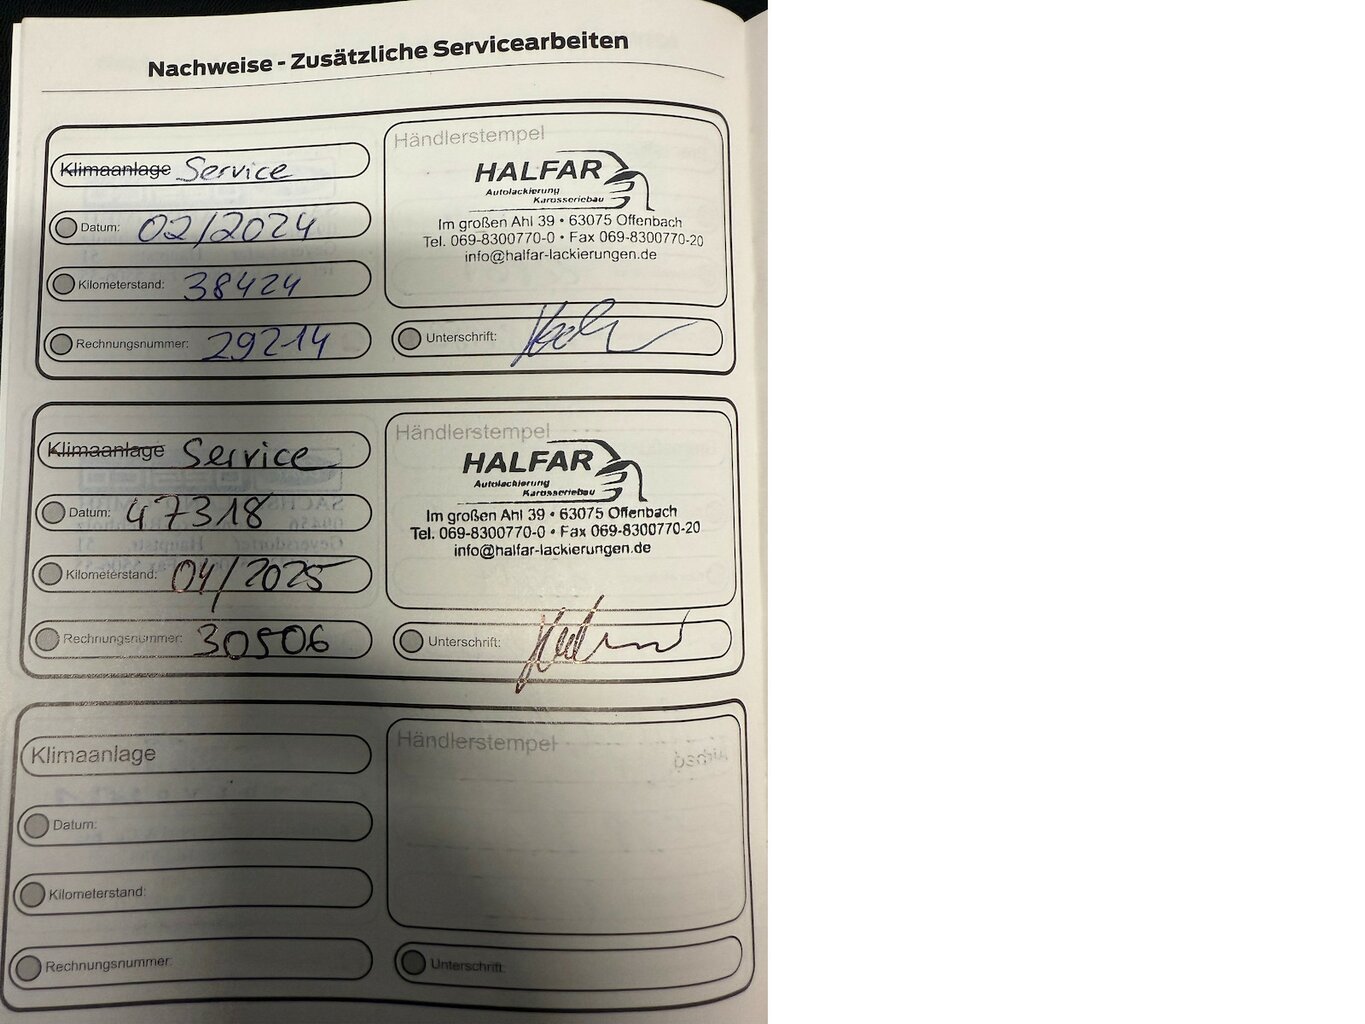 Nachweise - Zusätzliche Servicearbeiten
Klimaanlage Service
Datum: 02/2024
Kilometerstand: 38424
Rechnungsnummer: 29214
Händlerstempel
HALFAR
Autolackierung
Karosseriebau
Im großen Ahl 39 • 63075 Offenbach
Tel. 069-8300770-0 • Fax 069-8300770-20
info@halfar-lackierungen.de
Unterschrift:
Klimaanlage Service
Datum: 47318
Kilometerstand: 04/2025
Rechnungsnummer: 30506
Händlerstempel
HALFAR
Autolackierung
Karosseriebau
Im großen Ahl 39 • 63075 Offenbach
Tel. 069-8300770-0 • Fax 069-8300770-20
info@halfar-lackierungen.de
Unterschrift:
Klimaanlage
Datum:
Kilometerstand:
Rechnungsnummer:
Händlerstempel
Unterschrift: